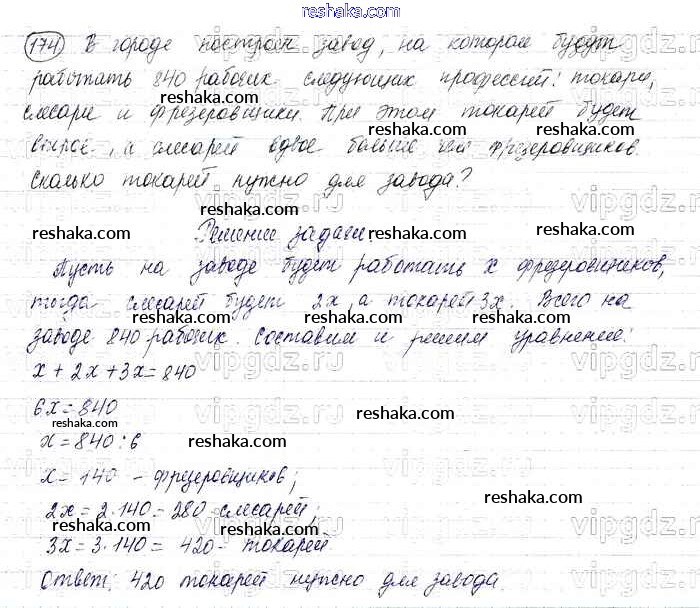 reshaka.com
174 В городе построен завод, на котором будут
работать 840 рабочих следующих профессий: токари,
reshaka.com
слесари и фрезеровщики. При этом токарей будет
reshaka.com
втрое, а слесарей вдвое больше чем фрезеровщиков.
Сколько токарей нужно для завода?
reshaka.com
Решение задачи.
reshaka.com reshaka.com
Пусть на заводе будет работать x фрезеровщиков,
тогда слесарей будет 2x, а токарей 3x. Всего на
reshaka.com
заводе 840 рабочих. Составим и решим уравнение:
reshaka.com
x + 2x + 3x = 840
6x = 840
reshaka.com
x = 840 : 6
reshaka.com
x = 140 - фрезеровщиков;
reshaka.com
2x = 2 · 140 = 280 - слесарей;
reshaka.com reshaka.com
3x = 3 · 140 = 420 - токарей
Ответ: 420 токарей нужно для завода.
reshaka.com
vipgdz.ru